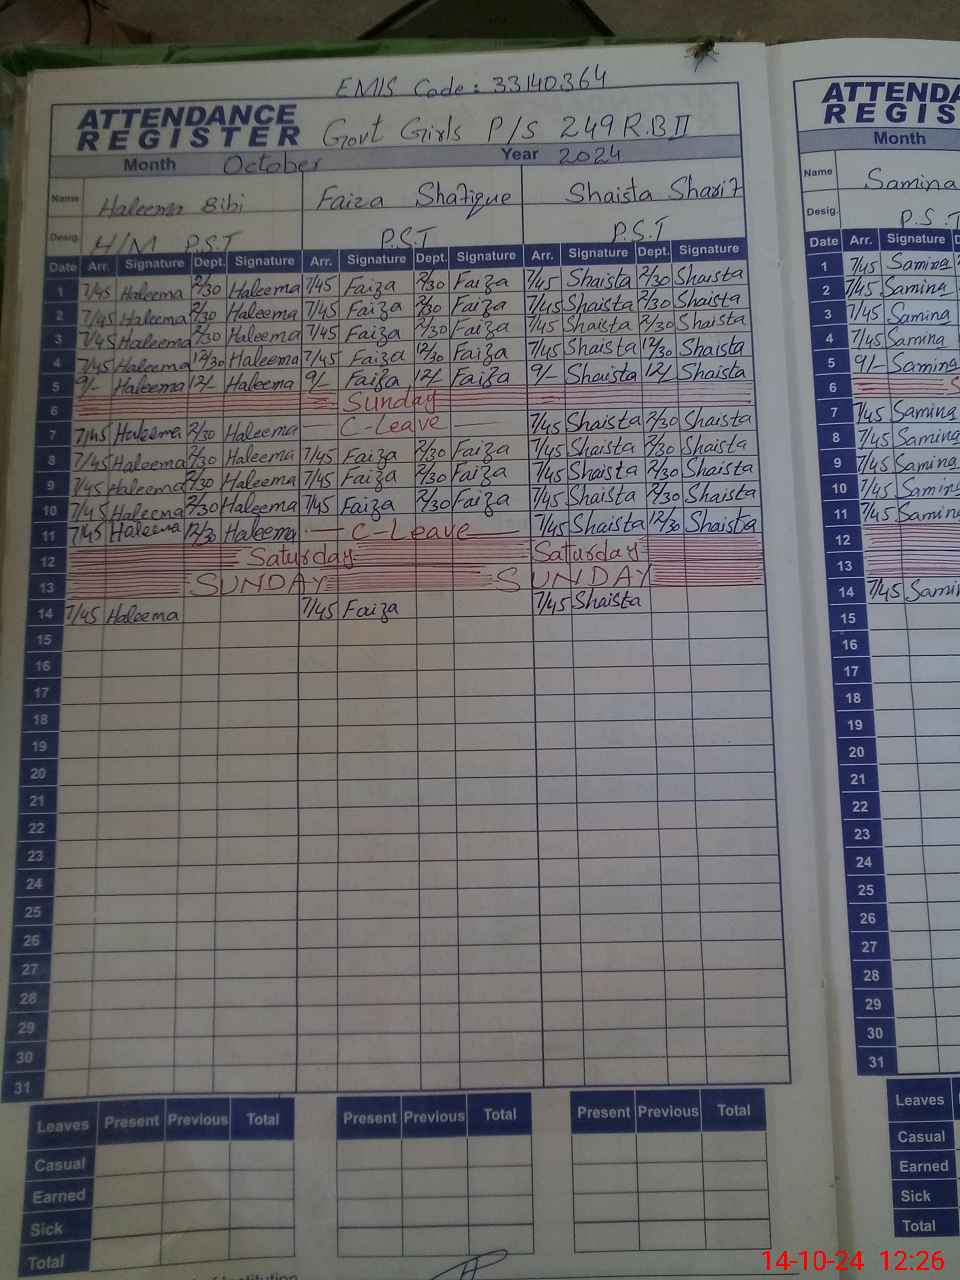 EMIS Code: 33140364
ATTENDANCE REGISTER Govt Girls P/S 249 R.B II
Month October Year 2024
Name Haleema Bibi Faiza Shafique Shaista Sharif
Desig. H/M P.S.T P.S.T P.S.T
Date Arr. Signature Dept. Signature Arr. Signature Dept. Signature Arr. Signature Dept. Signature
1 7/45 Haleema 2/30 Haleema 7/45 Faiza 2/30 Faiza 7/45 Shaista 2/30 Shaista
2 7/45 Haleema 2/30 Haleema 7/45 Faiza 2/30 Faiza 7/45 Shaista 2/30 Shaista
3 7/45 Haleema 2/30 Haleema 7/45 Faiza 2/30 Faiza 7/45 Shaista 2/30 Shaista
4 7/45 Haleema 12/30 Haleema 7/45 Faiza 12/30 Faiza 7/45 Shaista 12/30 Shaista
5 9/- Haleema 12/- Haleema 9/- Faiza 12/- Faiza 9/- Shaista 12/- Shaista
6 Sunday
7 7/45 Haleema 2/30 Haleema C-Leave 7/45 Shaista 2/30 Shaista
8 7/45 Haleema 2/30 Haleema 7/45 Faiza 2/30 Faiza 7/45 Shaista 2/30 Shaista
9 7/45 Haleema 2/30 Haleema 7/45 Faiza 2/30 Faiza 7/45 Shaista 2/30 Shaista
10 7/45 Haleema 2/30 Haleema 7/45 Faiza 2/30 Faiza 7/45 Shaista 2/30 Shaista
11 7/45 Haleema 12/30 Haleema C-Leave 7/45 Shaista 12/30 Shaista
12 Saturday Saturday
13 SUNDAY SUNDAY
14 7/45 Haleema 7/45 Faiza 7/45 Shaista
15
16
17
18
19
20
21
22
23
24
25
26
27
28
29
30
31
Leaves Present Previous Total Present Previous Total Present Previous Total
Casual
Earned
Sick
Total
ATTENDA
REGIS
Month
Name Samina
Desig. P.S.T
Date Arr. Signature D
1 7/45 Samina
2 7/45 Samina
3 7/45 Samina
4 7/45 Samina
5 9/- Samina
6 S
7 7/45 Samina
8 7/45 Samina
9 7/45 Samina
10 7/45 Samina
11 7/45 Samina
12
13
14 7/45 Sami
15
16
17
18
19
20
21
22
23
24
25
26
27
28
29
30
31
Leaves
Casual
Earned
Sick
Total
14-10-24 12:26